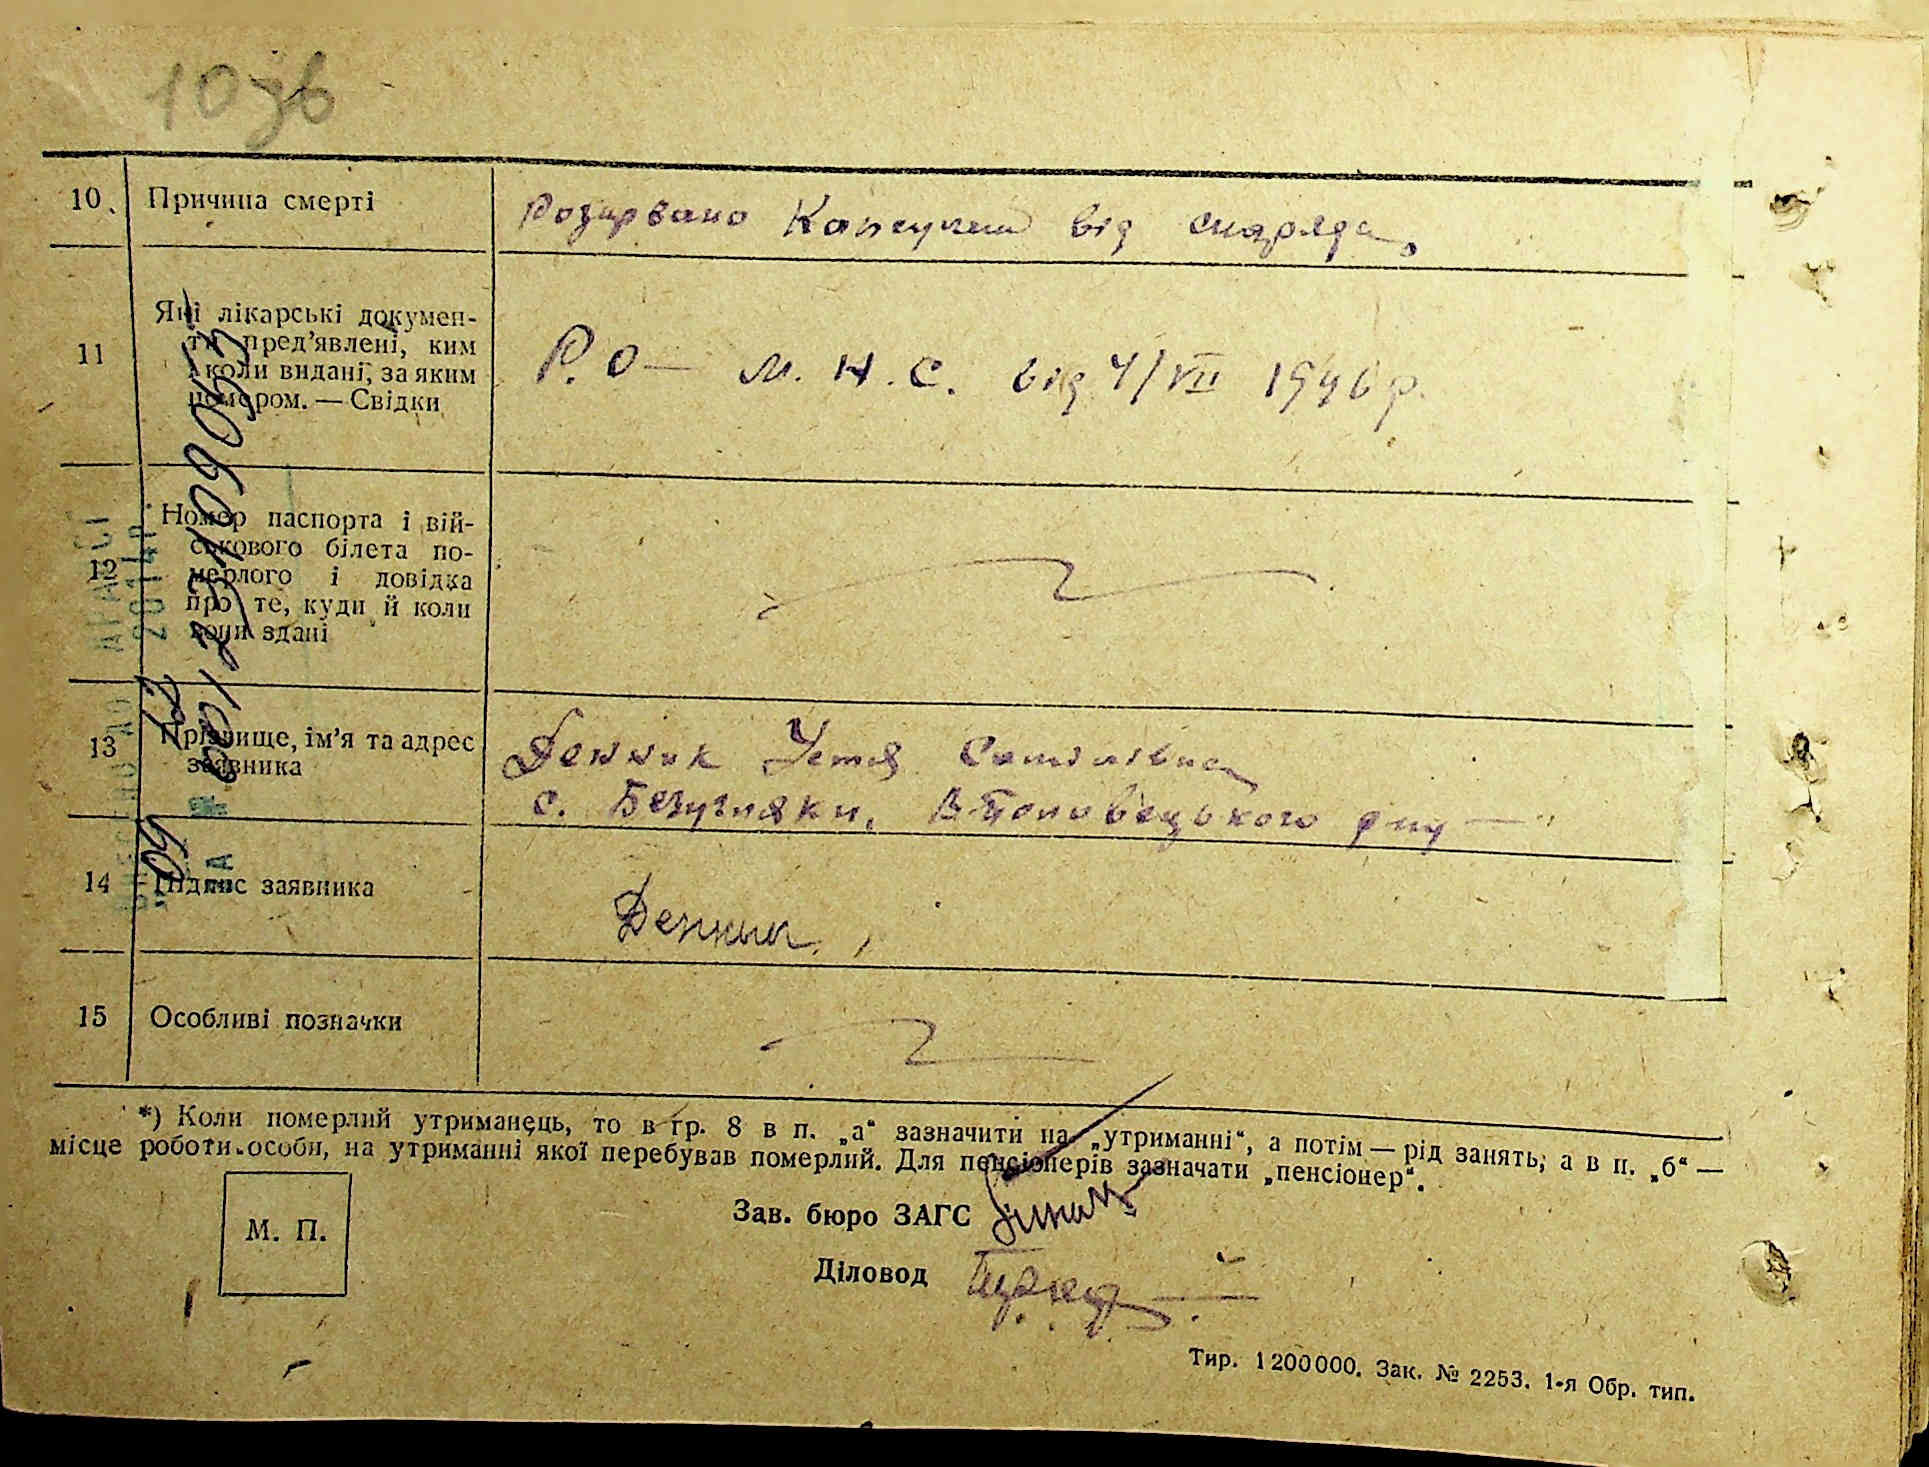 10 зв
10. Причина смерті Розирвано Капсулем від снаряда,
11 Які лікарські докумен-
ти пред’явлені, ким
і коли видані, за яким
номером. — Свідки
Р. О — М. Н. С. від 4/VII 1946 р.
12 Номер паспорта і вій-
ськового білета по-
мерлого і довідка
про те, куди й коли
вони здані
13 Прізвище, ім’я та адрес
заявника
Денник Устя
с. Безугляки, В-Половецького р-ну —
14 Підпис заявника Денник
15 Особливі позначки
*) Коли померлий утриманець, то в гр. 8 в п. „а“ зазначити на „утриманні“, а потім — рід занять, а в п. „б“ —
місце роботи особи, на утриманні якої перебував померлий. Для пенсіонерів зазначати „пенсіонер“.
М. П.
Зав. бюро ЗАГС
Діловод
Тир. 1200000. Зак. № 2253. 1-я Обр. тип.